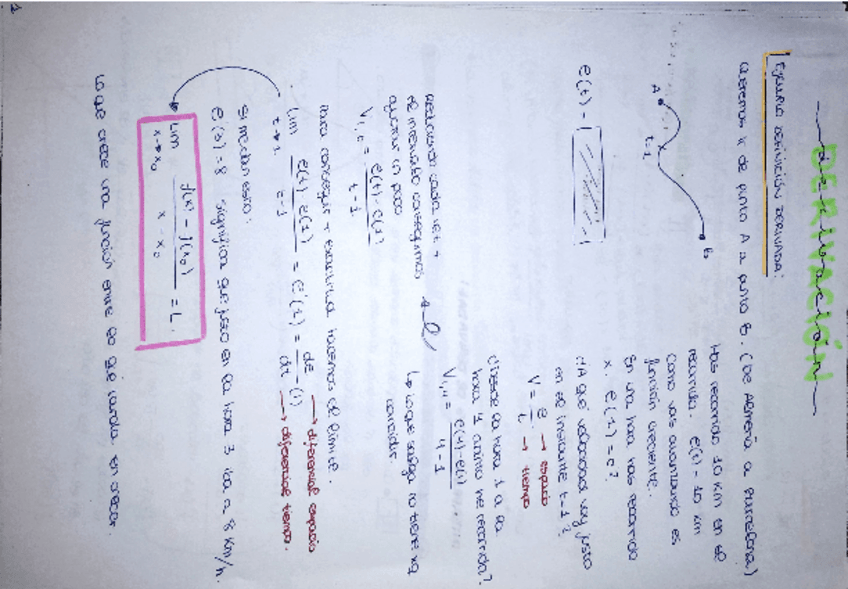 DERIVACIÓN
Ejemplo definición derivada:
Queremos ir de punto A a punto B. (De Almería a Barcelona)
A
t=1
B
Has recorrido 10 km en el
recorrido. e(t) = 10 km
como vas avanzando es
función creciente.
En una hora has recorrido
x. e(1)=e?
e(t) -
¿A qué velocidad voy justo
en el instante t=1?
V = e/t → espacio → tiempo
¿Desde la hora 1 a la
hora 4 cuánto he recorrido?
V1,4 = e(4)-e(1) / 4-1
↳ lo que salga no tiene xq
coincidir.
Reduciendo cada vez +
el intervalo conseguimos
ajustar un poco
V1,t = e(t)-e(1) / t-1
Para conseguir + exactitud hacemos el límite.
lim t→1 e(t) e(1) / t-1 = e'(1) = de/dt (1) → diferencial espacio → diferencial tiempo.
Si me dan esto:
e'(3)=8 significa que justo en la hora 3 iba a 8 km/h.
lim x→x0 f(x) - f(x0) / x - x0 = L.
Lo que crece una función entre lo que tarda en crecer.